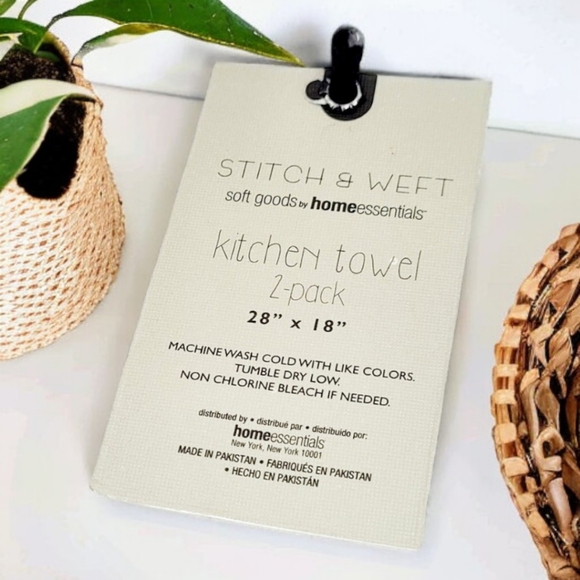 STITCH & WEFT
soft goods by homeessentials™
kitchen towel
2-pack
28” x 18”
MACHINE WASH COLD WITH LIKE COLORS.
TUMBLE DRY LOW.
NON CHLORINE BLEACH IF NEEDED.
distributed by • distribué par • distribuido por:
homeessentials
New York, New York 10001
MADE IN PAKISTAN • FABRIQUÉS EN PAKISTAN
• HECHO EN PAKISTÁN